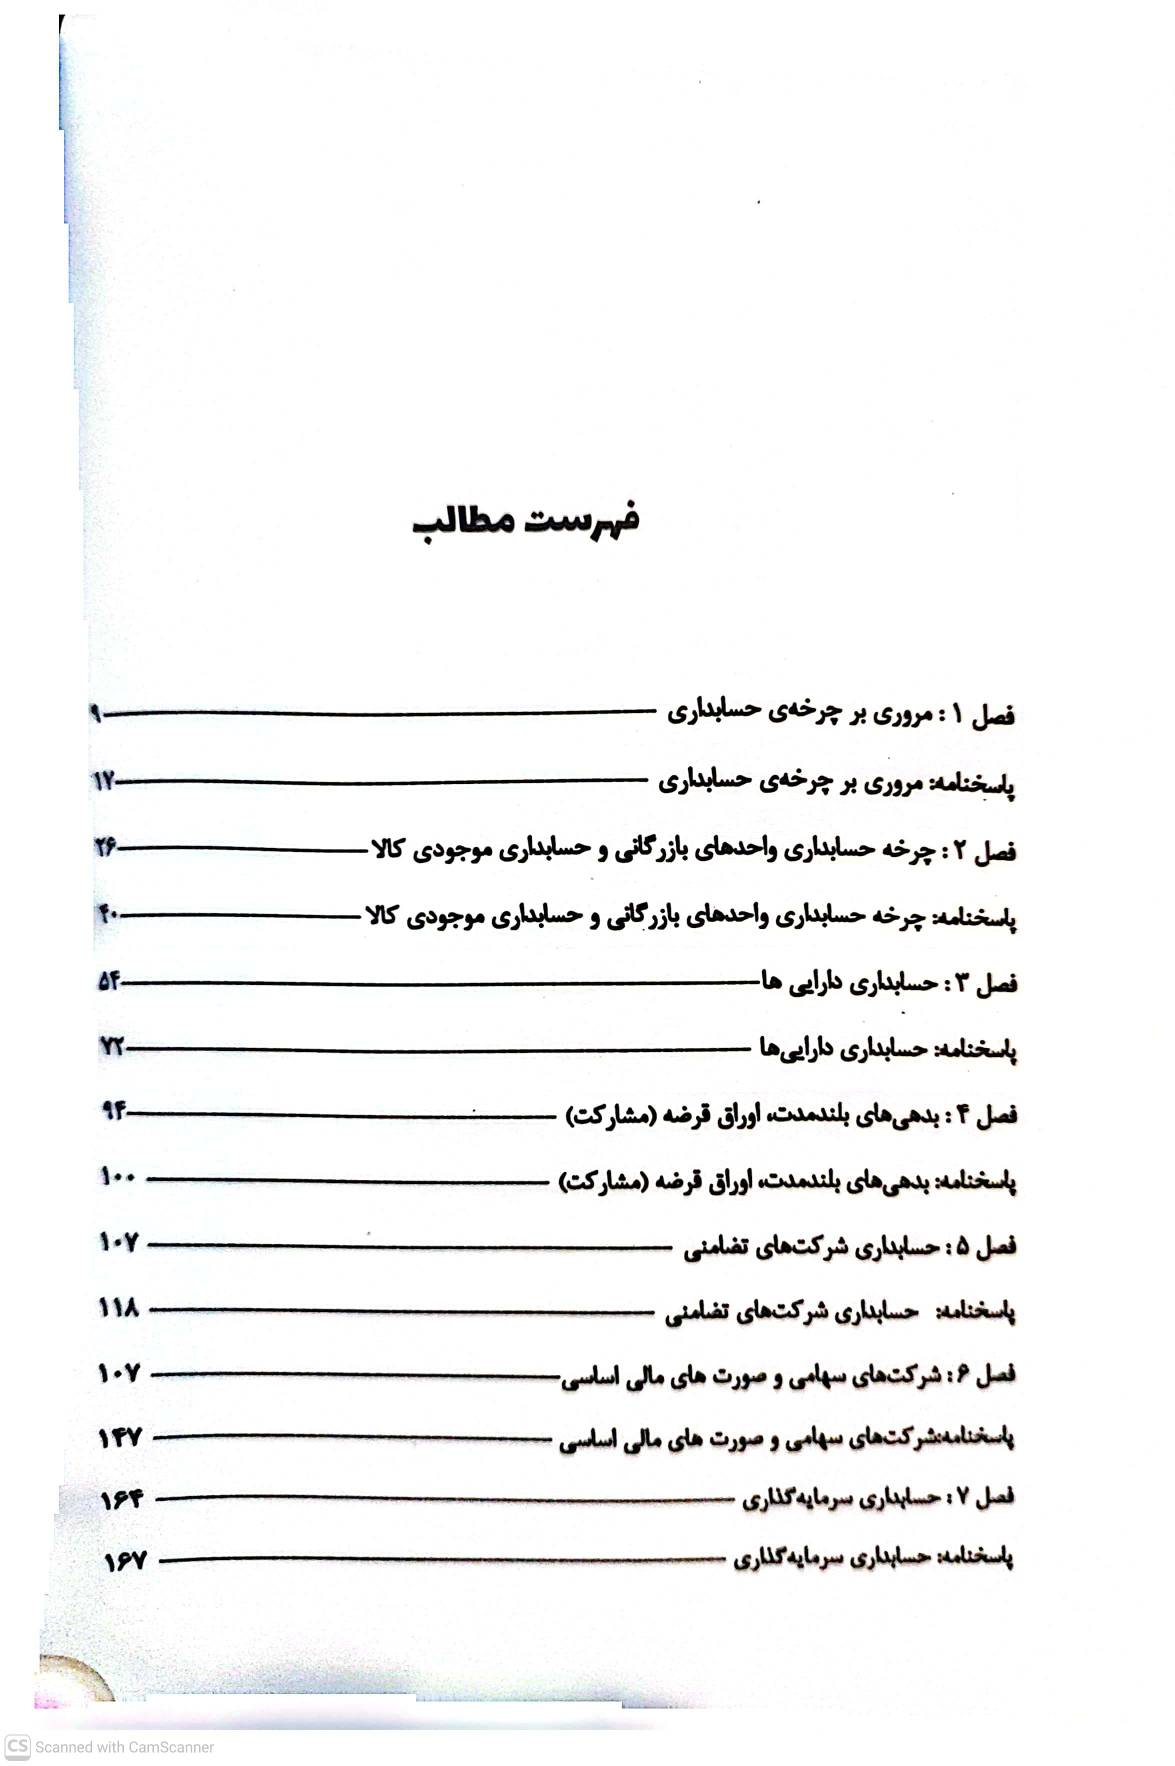 فهرست مطالب
فصل ۱ : مروری بر چرخه‌ی حسابداری ۹
پاسخنامه: مروری بر چرخه‌ی حسابداری ۱۷
فصل ۲ : چرخه حسابداری واحدهای بازرگانی و حسابداری موجودی کالا ۲۶
پاسخنامه: چرخه حسابداری واحدهای بازرگانی و حسابداری موجودی کالا ۴۰
فصل ۳ : حسابداری دارایی ها ۵۴
پاسخنامه: حسابداری دارایی‌ها ۷۲
فصل ۴ : بدهی‌های بلندمدت، اوراق قرضه (مشارکت) ۹۴
پاسخنامه: بدهی‌های بلندمدت، اوراق قرضه (مشارکت) ۱۰۰
فصل ۵ : حسابداری شرکت‌های تضامنی ۱۰۷
پاسخنامه: حسابداری شرکت‌های تضامنی ۱۱۸
فصل ۶ : شرکت‌های سهامی و صورت های مالی اساسی ۱۰۷
پاسخنامه:شرکت‌های سهامی و صورت های مالی اساسی ۱۴۷
فصل ۷ : حسابداری سرمایه‌گذاری ۱۶۴
پاسخنامه: حسابداری سرمایه‌گذاری ۱۶۷
CS Scanned with CamScanner